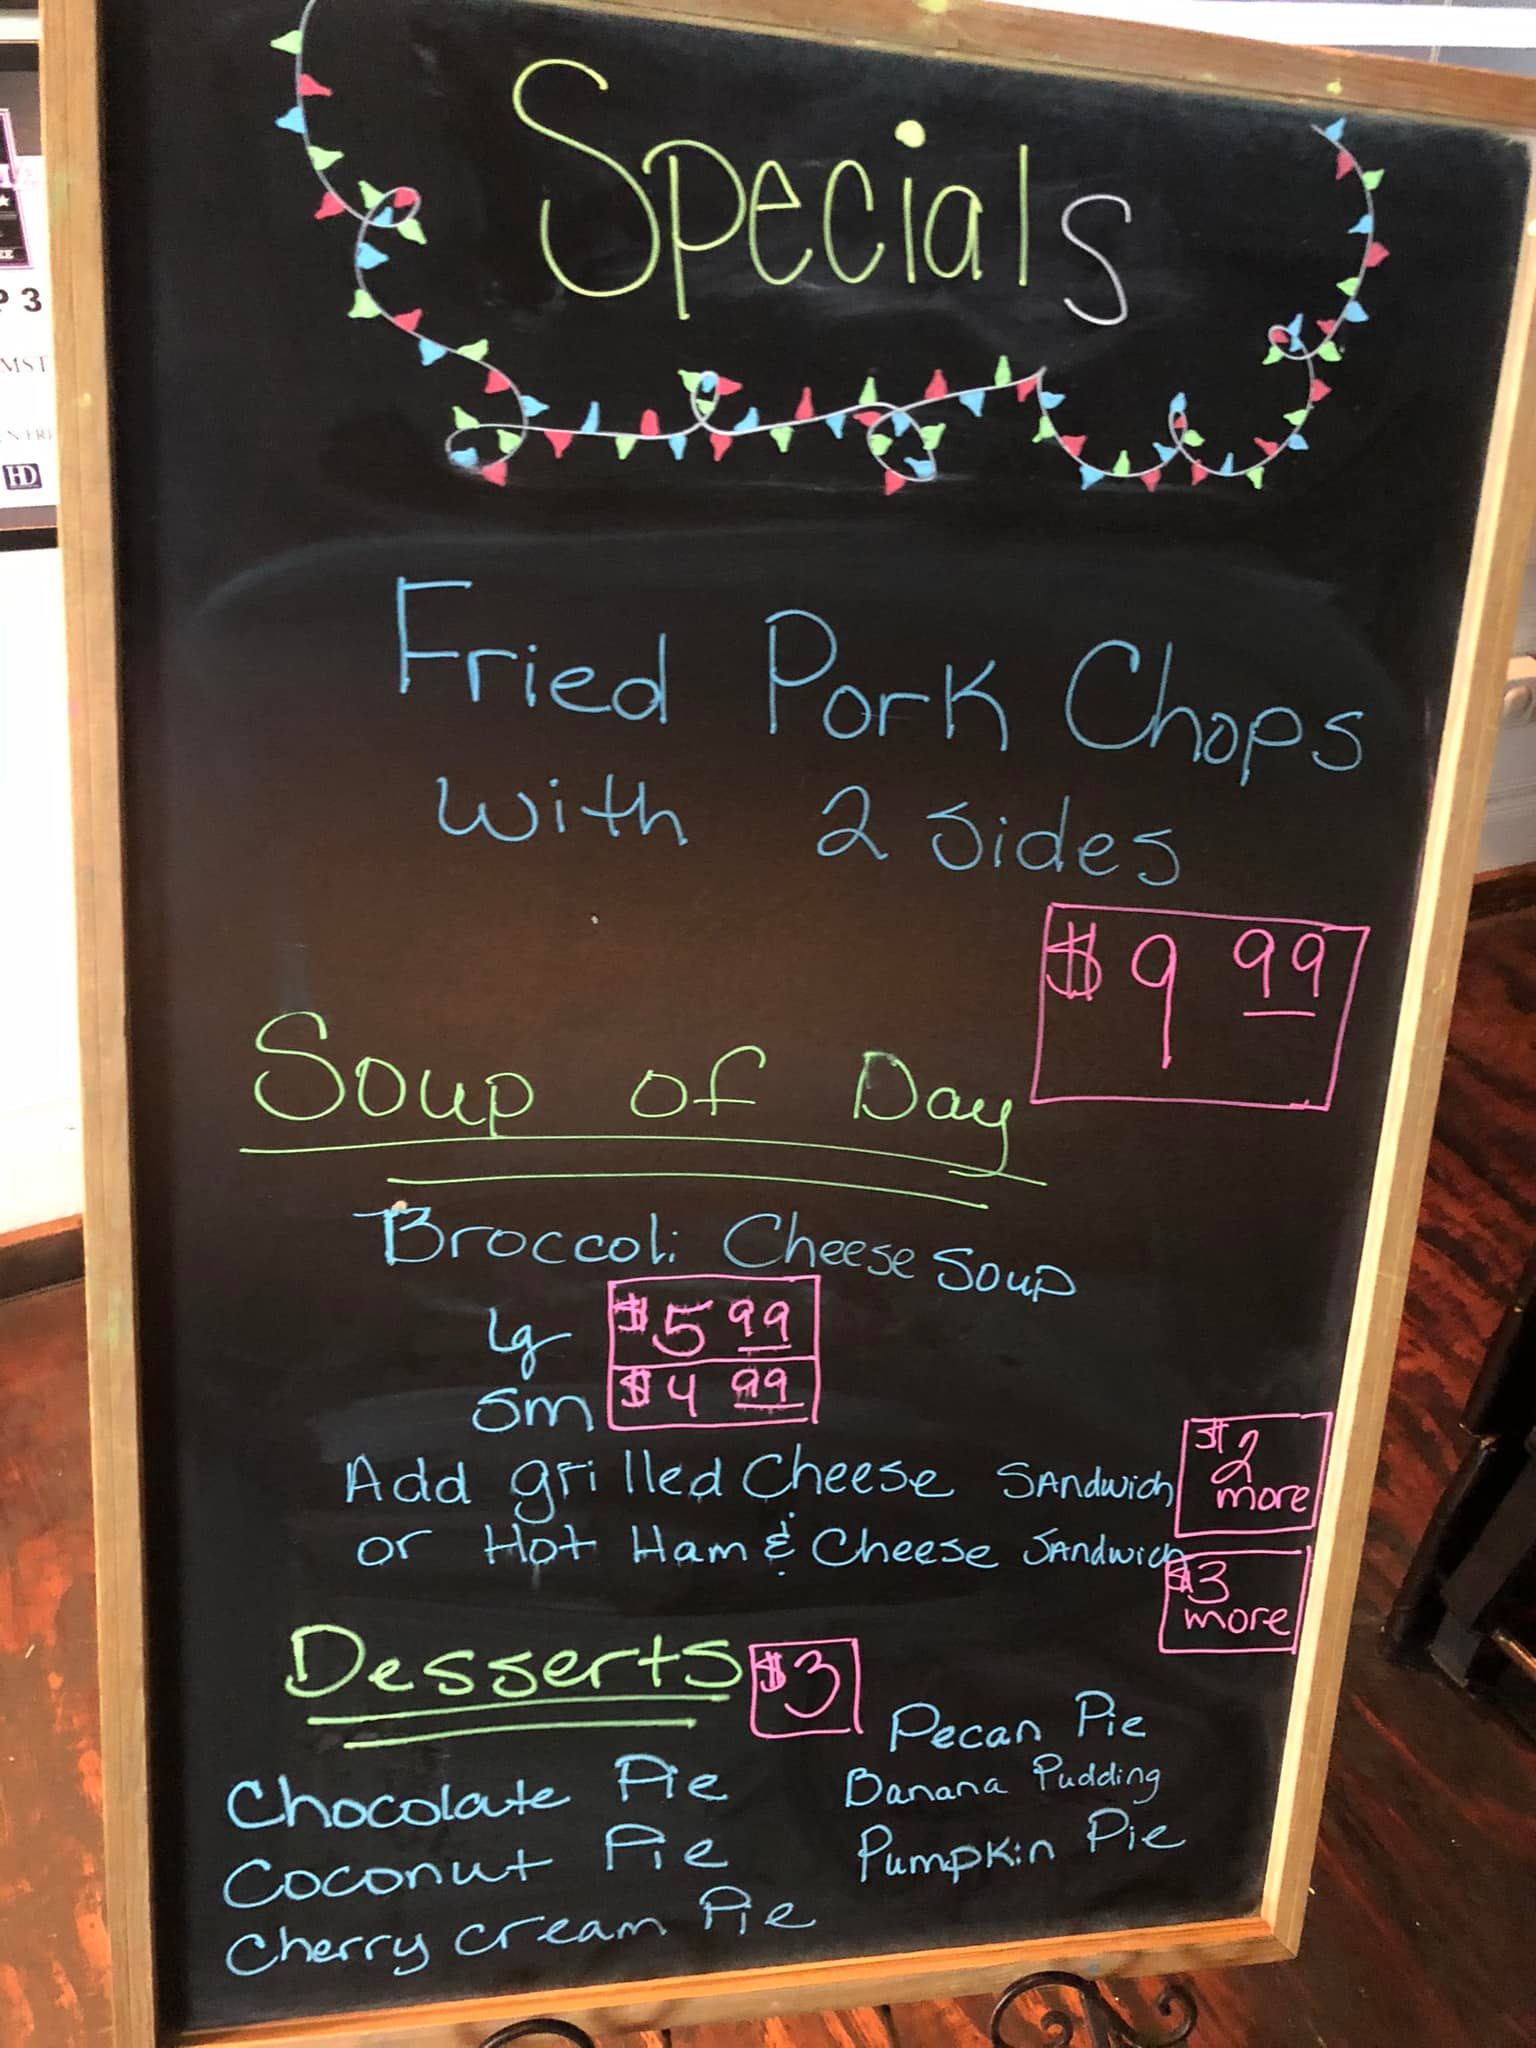 Specials
Fried Pork Chops
with 2 sides
$9 99
Soup of Day
Broccoli Cheese Soup
lg $5 99
Sm $4 99
Add grilled Cheese Sandwich $2 more
or Hot Ham & Cheese Sandwich $3 more
Desserts $3
Chocolate Pie
Coconut Pie
Cherry cream Pie
Pecan Pie
Banana Pudding
Pumpkin Pie
P 3
MST
HD